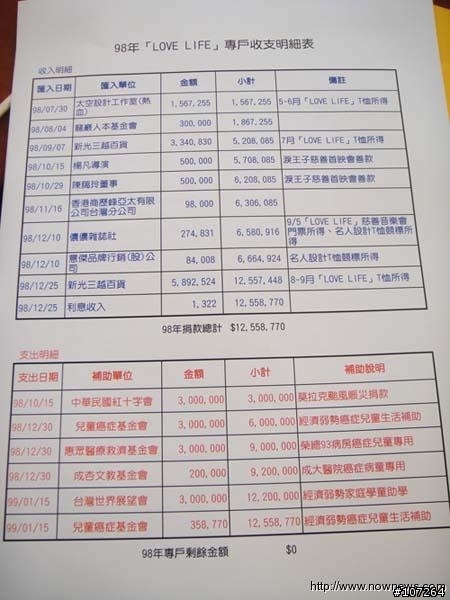 98年「LOVE LIFE」專戶收支明細表
收入明細
匯入日期 匯入單位 金額 小計 備註
98/07/30 太空設計工作室(熱血) 1,567,255 1,567,255 5-6月「LOVE LIFE」T恤所得
98/08/04 龍巖人本基金會 300,000 1,867,255
98/09/07 新光三越百貨 3,340,830 5,208,085 7月「LOVE LIFE」T恤所得
98/10/15 楊凡導演 500,000 5,708,085 淚王子慈善首映會善款
98/10/29 陳佩玲董事 500,000 6,208,085 淚王子慈善首映會善款
98/11/16 香港商歷峰亞太有限公司台灣分公司 98,000 6,306,085
98/12/10 儂儂雜誌社 274,831 6,580,916 9/5「LOVE LIFE」慈善音樂會門票所得、名人設計T恤競標所得
98/12/10 意傑品牌行銷(股)公司 84,008 6,664,924 名人設計T恤競標所得
98/12/25 新光三越百貨 5,892,524 12,557,448 8-9月「LOVE LIFE」T恤所得
98/12/25 利息收入 1,322 12,558,770
98年捐款總計 $12,558,770
支出明細
支出日期 補助單位 金額 小計 補助說明
98/10/15 中華民國紅十字會 3,000,000 3,000,000 莫拉克颱風賑災捐款
98/12/30 兒童癌症基金會 3,000,000 6,000,000 經濟弱勢癌症兒童生活補助
98/12/30 惠眾醫療救濟基金會 3,000,000 9,000,000 榮總93病房癌症兒童專用
98/12/30 成杏文教基金會 200,000 9,200,000 成大醫院癌症病童專用
99/01/15 台灣世界展望會 3,000,000 12,200,000 經濟弱勢家庭學童助學
99/01/15 兒童癌症基金會 358,770 12,558,770 經濟弱勢癌症兒童生活補助
98年專戶剩餘金額 $0
http://www.nownews.com
#107264